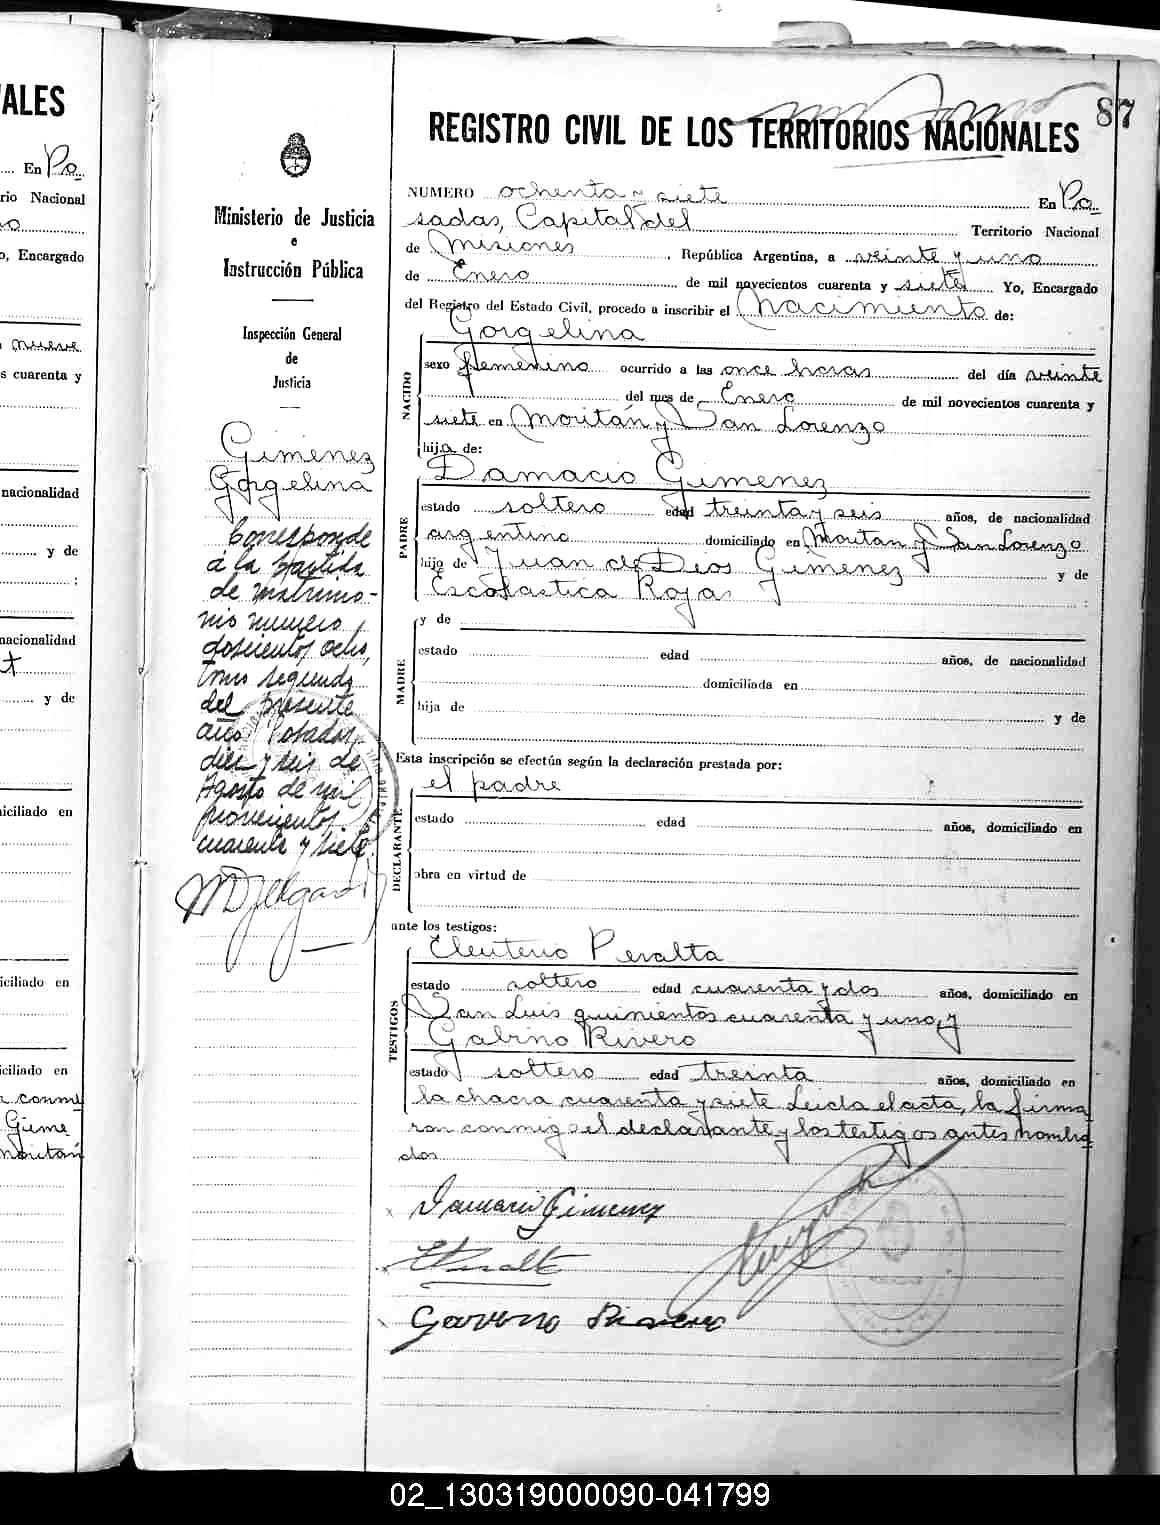 ALES
En Po
rio Nacional
o, Encargado
nueve
s cuarenta y
nacionalidad
y de
nacionalidad
y de
iciliado en
iciliado en
iciliado en
Gime
moritán
87
REGISTRO CIVIL DE LOS TERRITORIOS NACIONALES
Ministerio de Justicia
e
Instrucción Pública
Inspección General
de
Justicia
Gimenez
Gorgelina
Corresponde
a la partida
de matrimo-
nio numero
doscientos ocho,
tomo segundo
del presente
año Posadas,
diez y seis de
Agosto de mil
novecientos
cuarenta y siete.
NUMERO ochenta y siete En Po
sadas, Capital del Territorio Nacional
de Misiones, República Argentina, a veinte y uno
de Enero de mil novecientos cuarenta y siete Yo, Encargado
del Registro del Estado Civil, procedo a inscribir el Nacimiento de:
NACIDO
Gorgelina
sexo femenino ocurrido a las once horas del día veinte
del mes de Enero de mil novecientos cuarenta y
siete en Moritán y San Lorenzo
hija de:
PADRE
Damacio Gimenez
estado soltero edad treinta y seis años, de nacionalidad
argentino domiciliado en Moritan y San Lorenzo
hijo de Juan de Dios Gimenez y de
Escolastica Rojas :
MADRE
y de
estado edad años, de nacionalidad
domiciliada en
hija de y de
Esta inscripción se efectúa según la declaración prestada por:
DECLARANTE
el padre
estado edad años, domiciliado en
obra en virtud de
ante los testigos:
TESTIGOS
Eleuterio Peralta
estado soltero edad cuarenta y dos años, domiciliado en
San Luis quinientos cuarenta y uno, y
Gabino Rivero
estado soltero edad treinta años, domiciliado en
la chacra cuarenta y siete Leida el acta, la firma
ron conmigo el declarante y los testigos antes nombra
dos
Damacio Gimenez
EPeralta
02_130319000090-041799